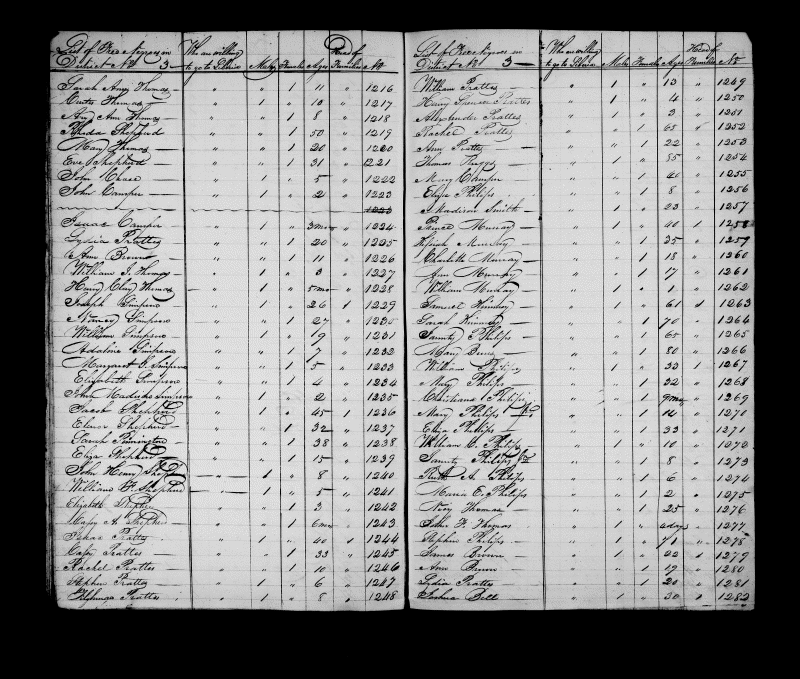 List of Free Negroes in District No 3 — Who are willing to go to Liberia Males Females Ages Head of Families No
Sarah Ann Thomas — " " 1 11 " 1216
Thomas — " " 1 10 " 1217
Ann Thomas — " " 1 8 " 1218
Rhoda Shepherd " " 1 50 " 1219
Mary Thomas — " " 1 20 " 1220
Eve Shepherd " " 1 31 " 1221
John Chase — " 1 " 5 " 1222
John Camper — " 1 " 2 " 1223
1223
Isaac Camper — " 1 " 3 mo " 1224
Lydia Prattes " " 1 20 " 1225
Ann Brown — " " 1 11 " 1226
William J. Thomas " 1 " 3 " 1227
Henry Clay Thomas — " 1 " 5 mo " 1228
Joseph Simpson " 1 " 26 1 1229
Nancy Simpson " " 1 27 " 1230
William Simpson — " 1 " 9 " 1231
Adaline Simpson " " 1 7 " 1232
Margaret A. Simpson " " 1 5 " 1233
Elizabeth Simpson " " 1 4 " 1234
John Simpson " 1 " 2 " 1235
Jacob Shepherd " 1 " 45 " 1236
Elenor Shepherd — " " 1 32 " 1237
Sarah Pennington " " 1 38 " 1238
Eliza Shepherd — " " 1 15 " 1239
John Henry Shepherd — " — 1 " 8 " 1240
William H. Shepherd — " — 1 " 5 " 1241
Elizabeth Shepherd " " 1 3 " 1242
A. Shepherd — " " 1 6 mo " 1243
Prattes " 1 " 40 1 1244
Prattes — " " 1 33 " 1245
Rachel Prattes — " " 1 10 " 1246
Stephen Prattes " 1 " 6 " 1247
Prattes " 1 " 8 " 1248
List of Free Negroes in District No 3 — Who are willing to go to Liberia Males Females Ages Head of Families No
William Prattes — " 1 " 13 " 1249
Henry Spencer Prattes " 1 " 4 " 1250
Alexander Prattes — " 1 " 3 " 1251
Rachel Prattes " " 1 65 " 1252
Amy Prattes — " " 1 22 " 1253
Thomas — " 1 " 85 " 1254
Mary Camper — " " 1 " 1255
Eliza Philips " " 1 8 " 1256
Madison Smith — " 1 " 23 " 1257
Prince Murray — " 1 " 40 1 1258
Murray " " 1 35 " 1259
Charlotte Murray — " " 1 18 " 1260
Ann Murray " " 1 17 " 1261
William Murray " 1 " 1 " 1262
Samuel " 1 " 61 1 1263
Sarah " " 1 70 " 1264
Philips " " 1 65 " 1265
Mary — " " 1 80 " 1266
William Philips " 1 " 33 1 1267
Mary Philips — " " 1 32 " 1268
Christiana Philips " " 1 9 mo " 1269
Mary Philips " " 1 14 " 1270
Eliza Philips " " 1 33 " 1271
William C. Philips — " 1 " 10 " 1072
Philips " " 1 8 " 1273
Ruth A. Philips " " 1 6 " 1274
Maria E. Philips " " 1 2 " 1275
Thomas — " " 1 25 " 1276
John F. Thomas " 1 " days " 1277
Stephen Philips " 1 " 71 1 1278
James Brown — " 1 " 22 1 1279
Ann Brown " " 1 19 " 1280
Lydia Prattes " " 1 20 " 1281
Joshua Bell — " 1 " 30 " 1282